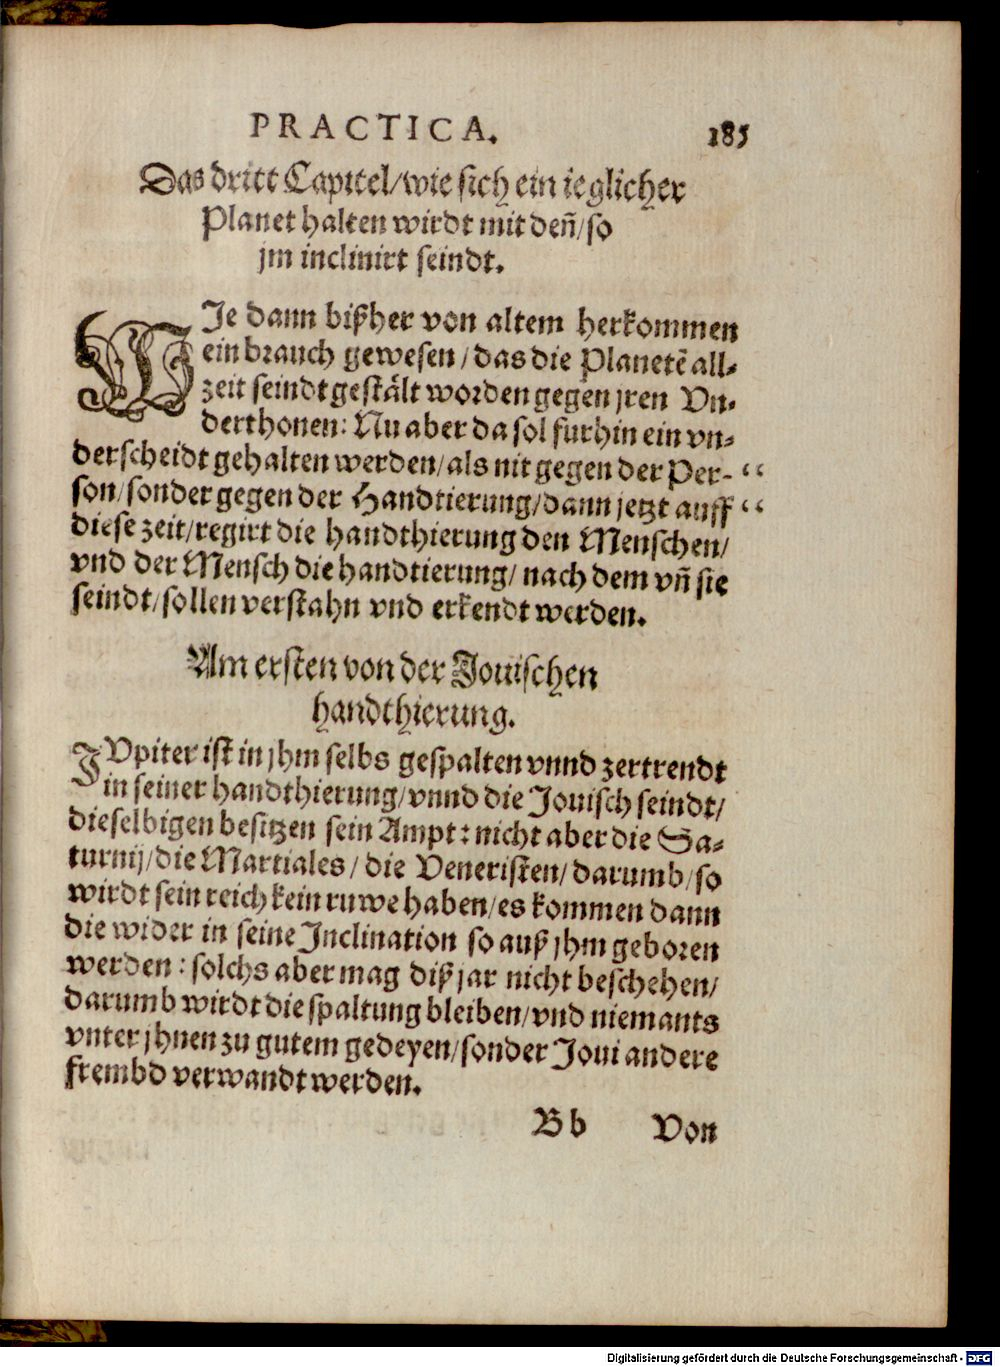 PRACTICA. 185
Das dritt Capitel/wie sich ein ieglicher
Planet halten wirdt mit deñ/so
jm inclinirt seindt.
WIe dann bißher von altem herkommen
ein brauch gewesen/das die Planetẽ all-
zeit seindt gestält worden gegen jren Vn-
derthonen: Nu aber da sol fürhin ein vn-
derscheidt gehalten werden/als nit gegen der Per- “
son/sonder gegen der Handtierung/dann jetzt auff “
diese zeit/regirt die handthierung den Menschen/
vnd der Mensch die handtierung/nach dem vñ sie
seindt/sollen verstahn vnd erkendt werden.
Am ersten von der Jouischen
handthierung.
IVpiter ist in jhm selbs gespalten vnnd zertrendt
in seiner handthierung/vnnd die Jouisch seindt/
dieselbigen besitzen sein Ampt: nicht aber die Sa-
turnij/die Martiales/die Veneristen/darumb/so
wirdt sein reich kein ruwe haben/es kommen dann
die wider in seine Inclination so auß jhm geboren
werden: solchs aber mag diß jar nicht beschehen/
darumb wirdt die spaltung bleiben/vnd niemants
vnter jhnen zu gutem gedeyen/sonder Joui andere
frembd verwandt werden.
Bb Von
Digitalisierung gefördert durch die Deutsche Forschungsgemeinschaft - DFG